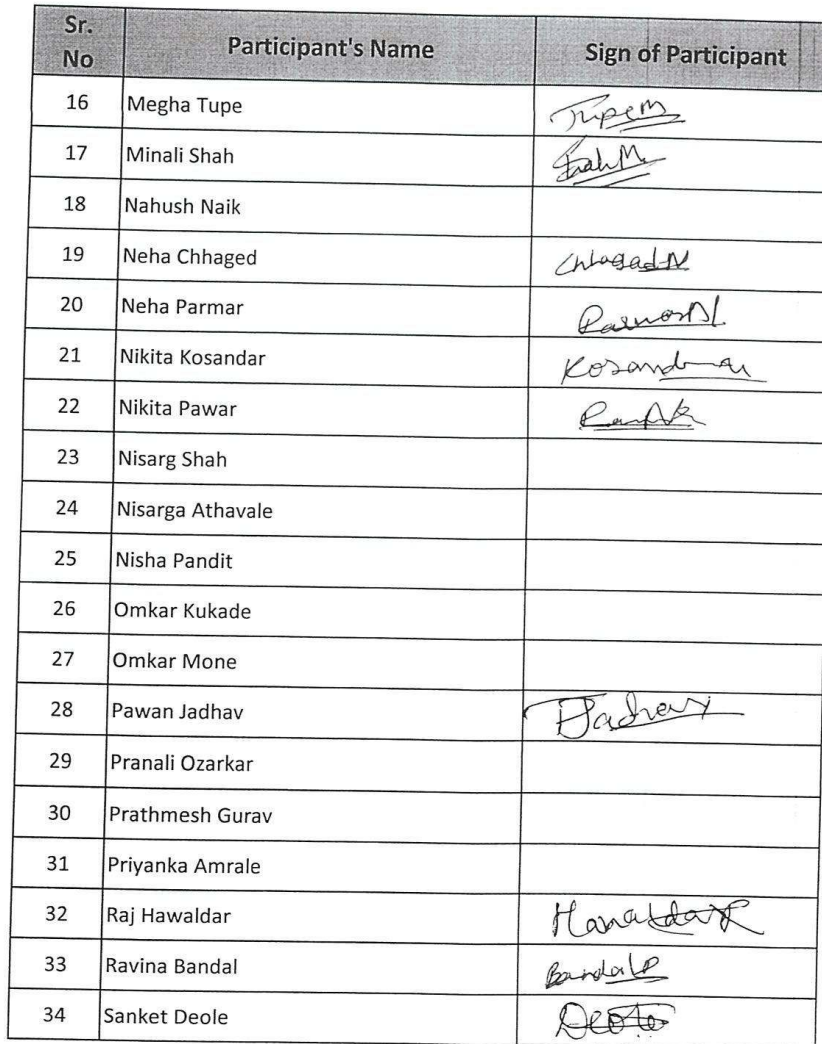 Sr. No Participant's Name Sign of Participant
16 Megha Tupe TupeM
17 Minali Shah ShahM.
18 Nahush Naik
19 Neha Chhaged ChhagedN
20 Neha Parmar
21 Nikita Kosandar
22 Nikita Pawar
23 Nisarg Shah
24 Nisarga Athavale
25 Nisha Pandit
26 Omkar Kukade
27 Omkar Mone
28 Pawan Jadhav Jadhav
29 Pranali Ozarkar
30 Prathmesh Gurav
31 Priyanka Amrale
32 Raj Hawaldar HawaldarR
33 Ravina Bandal BandalR
34 Sanket Deole Deole